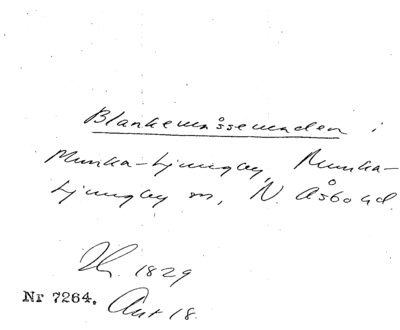 Blankemåssemaden i
Munka-Ljungby, Munka-
Ljungby sn, N. Åsbo hd.
Lh. 1829
Nr 7264. Akt 18.